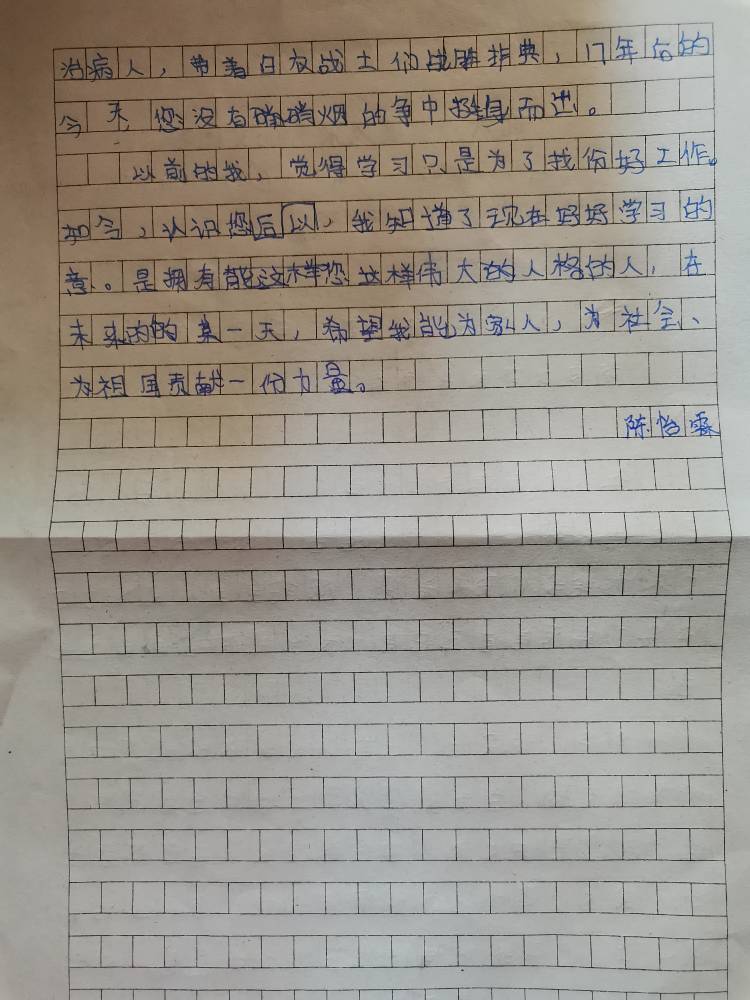 治病人，带着白衣战士们战胜非典，17年后的
今天，您没有硝烟的争中挺身而进。
以前的我，觉得学习只是为了找份好工作。
如今，认识您后以，我知道了现在好好学习的
意。是拥有能这样您这样伟大的人格的人，在
未来的的某一天，希望我能为别人，为社会、
为祖国贡献一份力量。
陈怡霖